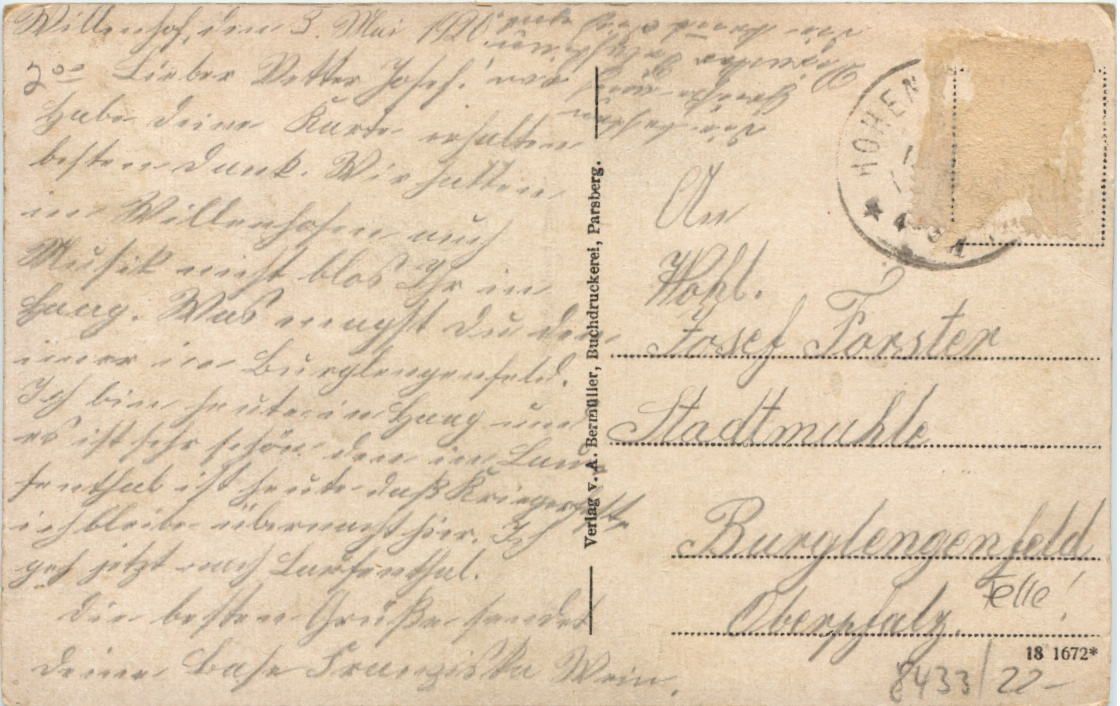 Willenhof, den 3. Mai 1920
Lieber Vetter Josef!
Habe deine Karte erhalten
besten Dank. Wir hatten
in Willenhofen auch
Musik nicht blos Ihr in
Haag. Was machst du den
imer in Burglengenfeld.
Ich bin heute in Haag und
es ist sehr schön den in
ist heute daß Kriegerfest
ich bleibe übernacht hier. Ich
geh jetzt nach
Die besten Grüße sendet
deine Base Franziska Wein.
Verlag v. A. Bermüller, Buchdruckerei, Parsberg.
HOHEN
An
Wohl.
Josef Forster
Stadtmuhle
Burglengenfeld
Oberpfalz.
18 1672*
8433/22-